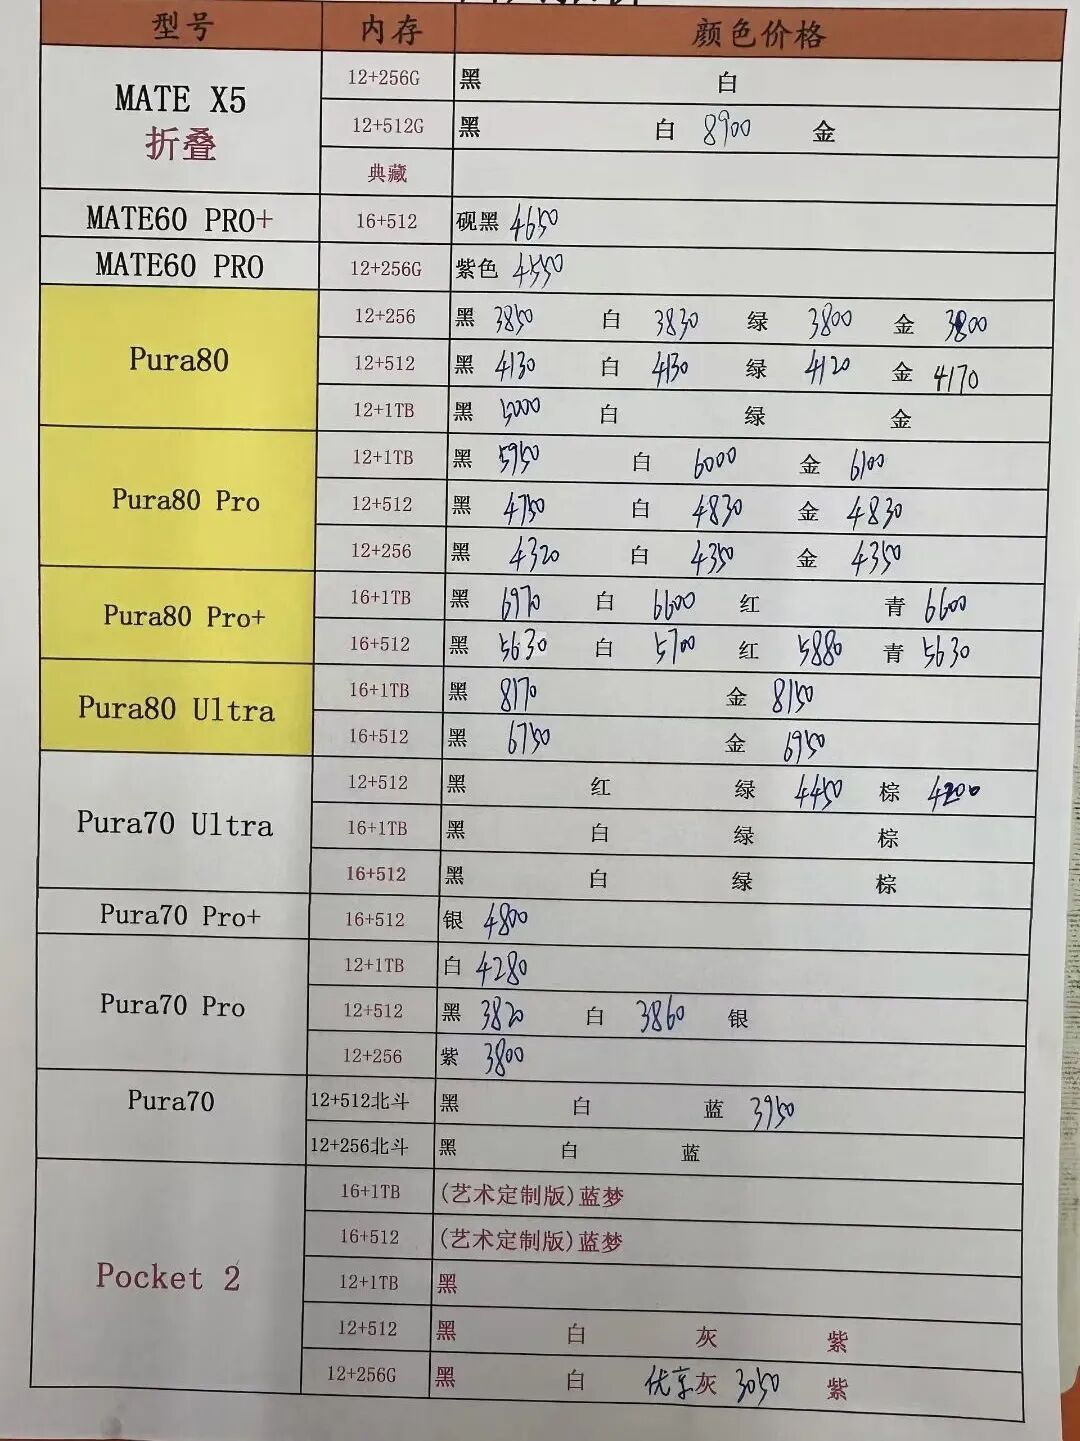 型号 内存 颜色价格
MATE X5 折叠
12+256G 黑 白
12+512G 黑 白 8900 金
典藏
MATE60 PRO+ 16+512 砚黑 4650
MATE60 PRO 12+256G 紫色 4550
Pura80
12+256 黑 3850 白 3830 绿 3800 金 3800
12+512 黑 4130 白 4130 绿 4120 金 4170
12+1TB 黑 5000 白 绿 金
Pura80 Pro
12+1TB 黑 5950 白 6000 金 6100
12+512 黑 4750 白 4830 金 4830
12+256 黑 4320 白 4350 金 4350
Pura80 Pro+
16+1TB 黑 6970 白 6600 红 青 6600
16+512 黑 5630 白 5700 红 5880 青 5630
Pura80 Ultra
16+1TB 黑 8170 金 8150
16+512 黑 6750 金 6950
Pura70 Ultra
12+512 黑 红 绿 4450 棕 4200
16+1TB 黑 白 绿 棕
16+512 黑 白 绿 棕
Pura70 Pro+ 16+512 银 4800
Pura70 Pro
12+1TB 白 4280
12+512 黑 3820 白 3860 银
12+256 紫 3800
Pura70
12+512北斗 黑 白 蓝 3950
12+256北斗 黑 白 蓝
Pocket 2
16+1TB (艺术定制版)蓝梦
16+512 (艺术定制版)蓝梦
12+1TB 黑
12+512 黑 白 灰 紫
12+256G 黑 白 优享灰 3050 紫